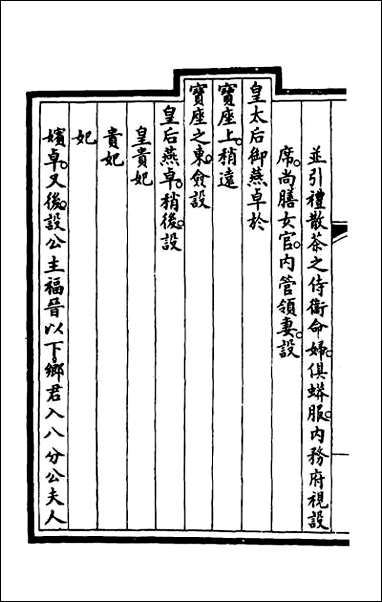 並引禮散茶之侍衛命婦俱蟒服內務府視設
席尚膳女官內管領妻設
皇太后御燕卓於
寶座上稍遠
寶座之東僉設
皇后燕卓稍後設
皇貴妃
貴妃
妃
嬪卓又後設公主福晉以下鄉君入八分公夫人